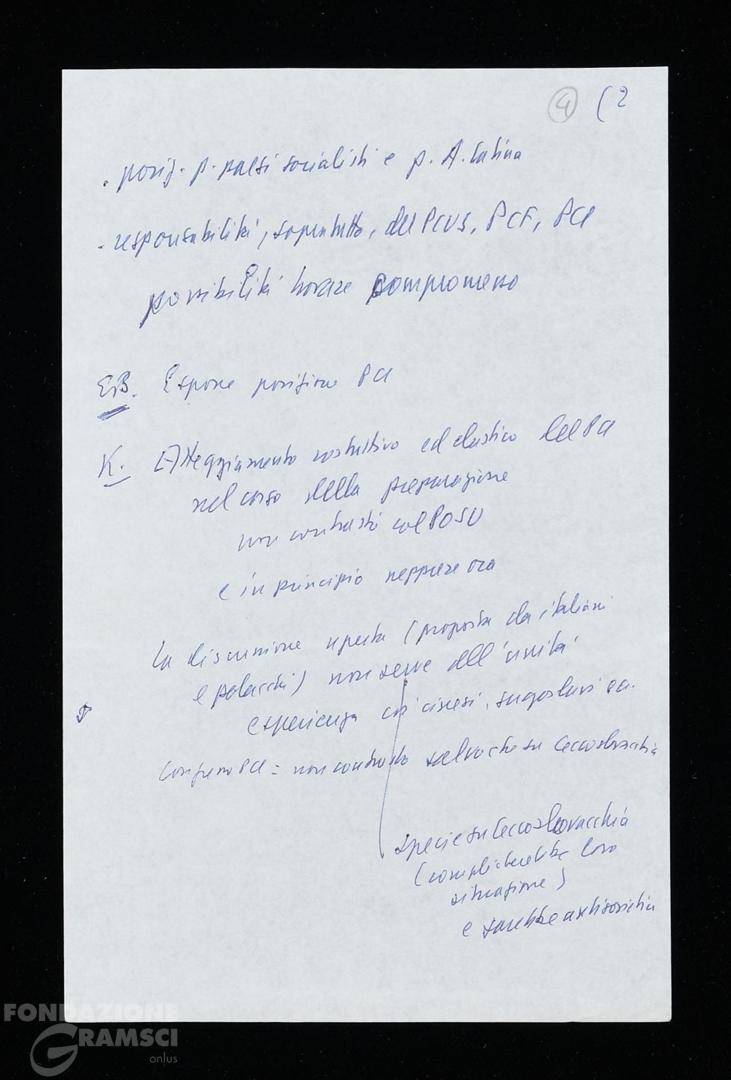 4 (2
. posiz. p. paesi socialisti e p. A. Latina
. responsabilità, soprattutto, del PCUS, PCF, PCI
possibilità trovare compromesso
EB. Espone posizione PCI
K. Atteggiamento costruttivo ed elastico del PCI
nel corso della preparazione
non contrasti col POSU
e in principio neppure ora
La discussione aperta (proposta da italiani
e polacchi) non serve all'unità
esperienza coi cinesi, jugoslavi ecc.
Congresso PCI = non contrasto salvo che su Cecoslovacchia
specie su Cecoslovacchia
(complicherebbe loro
situazione)
e sarebbe antisovietica
FONDAZIONE
GRAMSCI
onlus